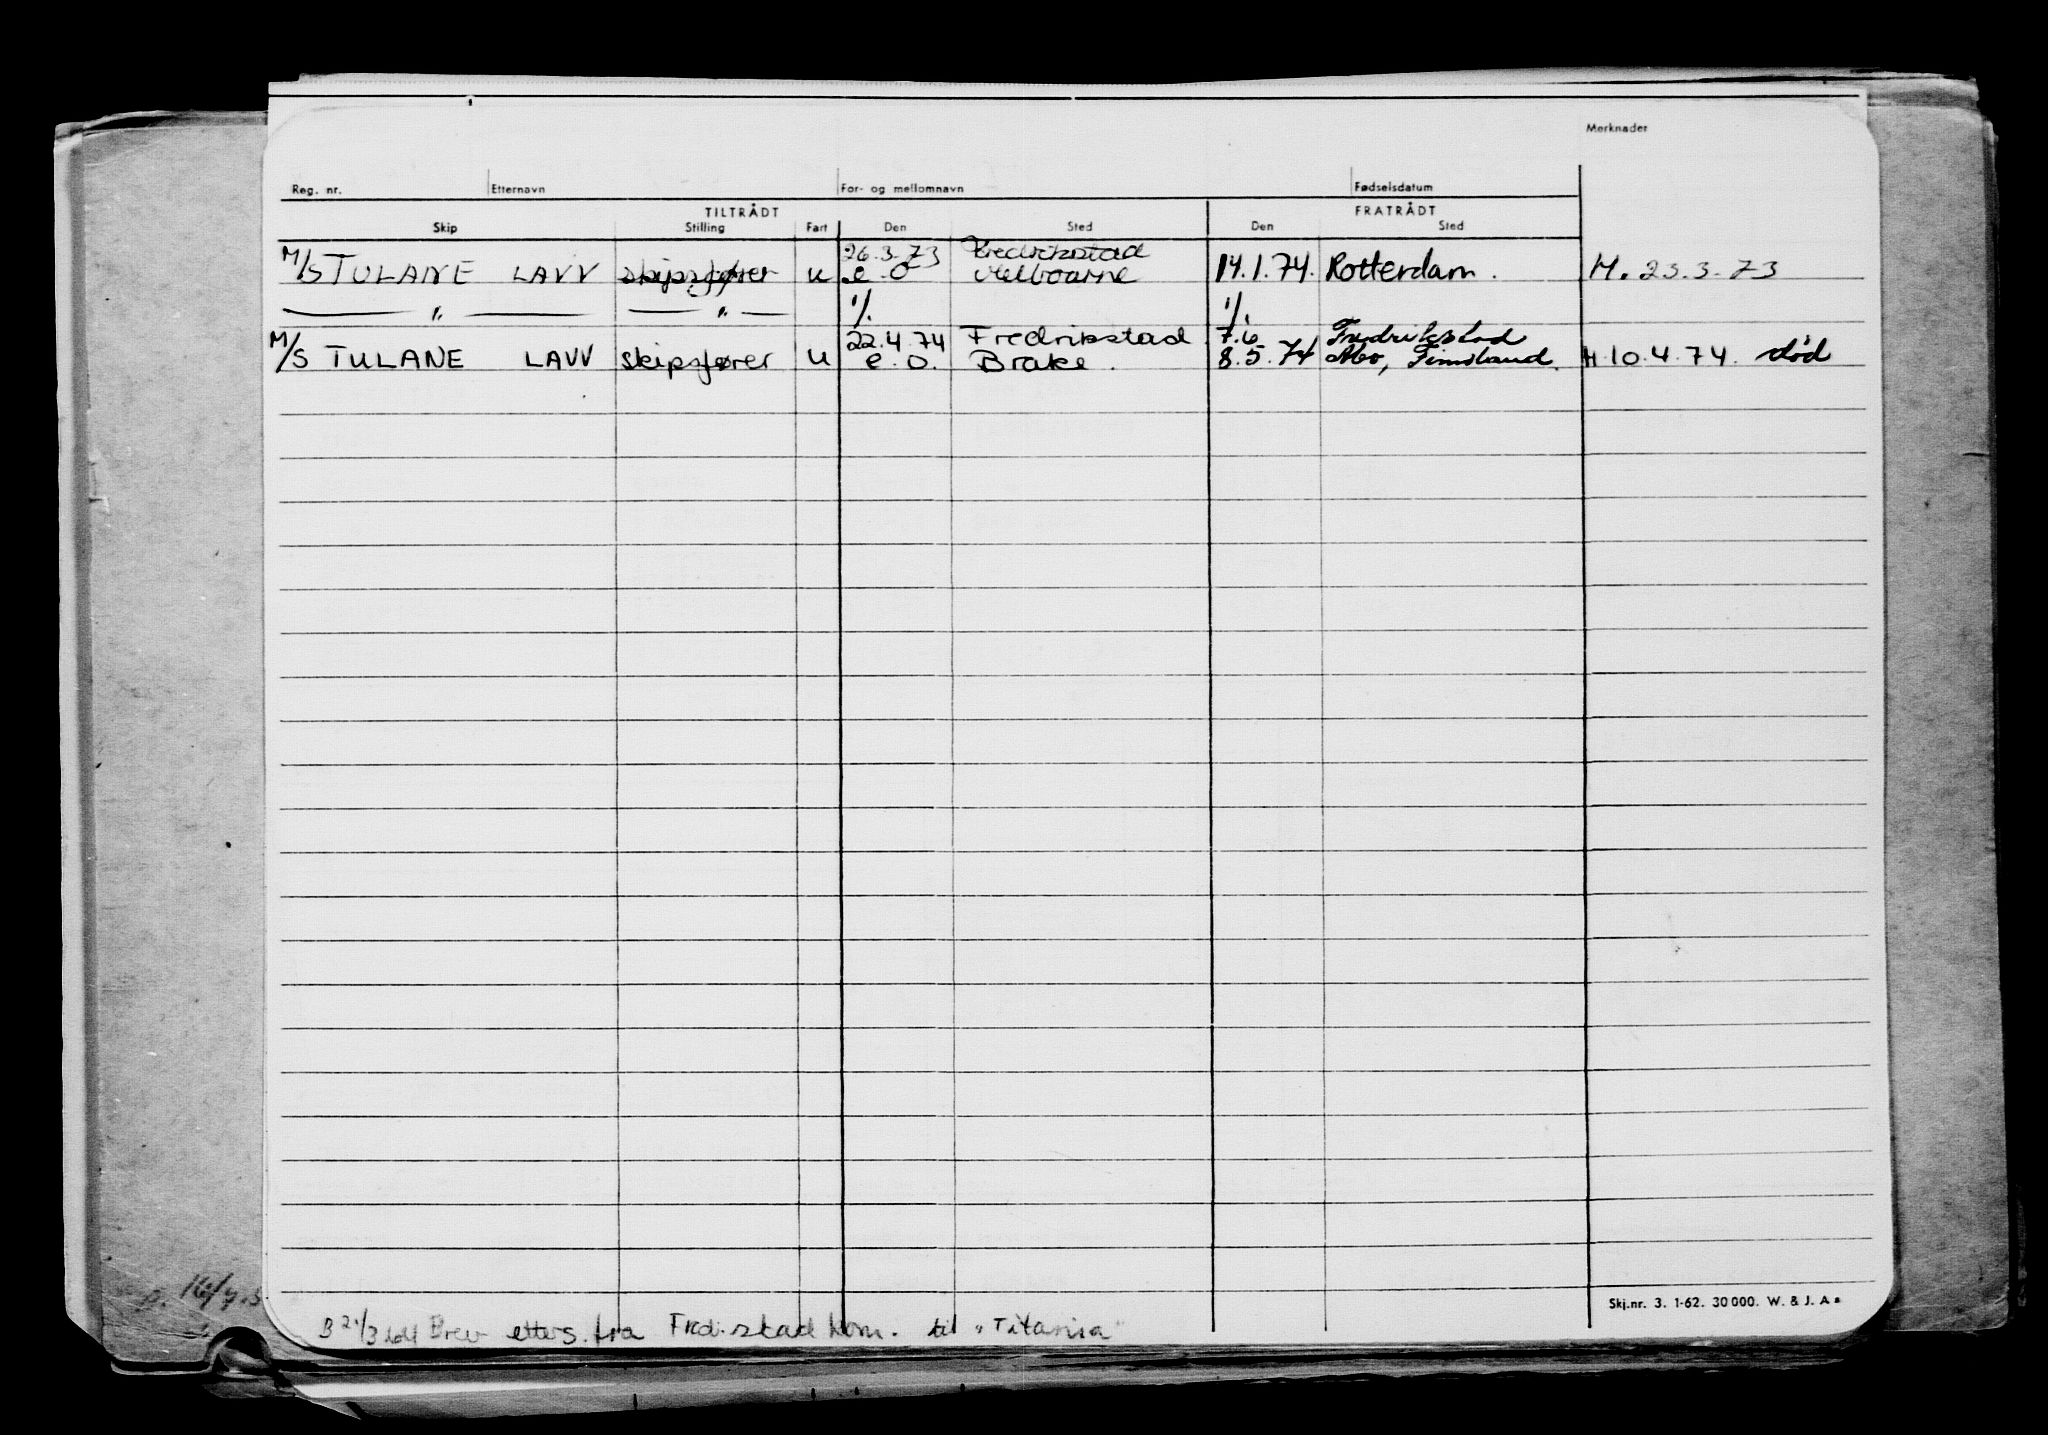 Merknader
Reg. nr. Etternavn For- og mellomnavn Fødselsdatum
TILTRÅDT FRATRÅDT
Skip Stilling Fart Den Sted Den Sted
26.3.73 Fredrikstad
M/S TULANE LAVV skipsfører u e.o Melbourne 14.1.74. Rotterdam. H. 23.3.73
— " — — " — 1/. 1/.
22.4.74 Fredrikstad 7.6 Fredrikstad
M/S TULANE LAVV skipsfører u e.o. Brake. 8.5.74 Abo, Finnland. H 10.4.74. død
Skj.nr. 3. 1-62. 30 000. W. & J. A s
B 21/3 Brev etters. fra Fred.stad kom. til "Titania"